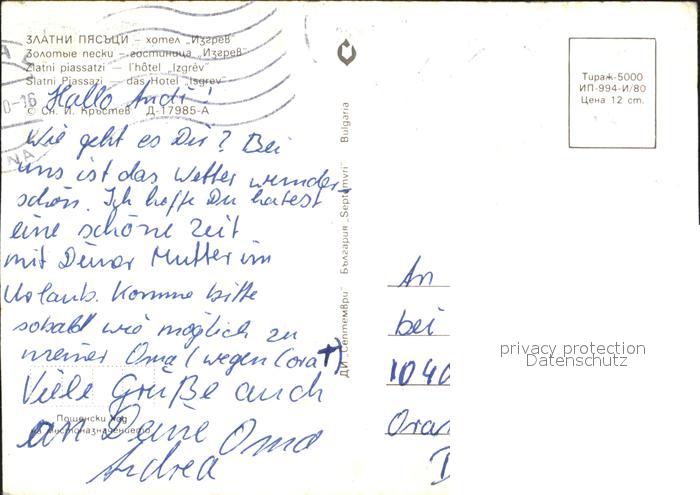 ЗЛАТНИ ПЯСЪЦИ – хотел „Изгрев"
Золотые пески – гостиница „Изгрев"
Zlatni piassatzi – l'hôtel „Izgrèv"
Slatni Piassazi – das Hotel „Isgrev"
© Сн. И. Кръстев Д-17985-А
Hallo Andi!
Wie geht es Dir? Bei
uns ist das Wetter wunder-
schön. Ich hoffe Du hattest
eine schöne Zeit
mit Deiner Mutter im
Urlaub. Komme bitte
sobald wie möglich zu
meiner Oma (wegen Cora †)
Viele Grüße auch
an Deine Oma
Andrea
Пощенски код
на местоназначението
ДИ „Септември" България „Septemvri" Bulgaria
Тираж-5000
ИП-994-И/80
Цена 12 ст.
An
bei
1040
Oran
privacy protection
Datenschutz